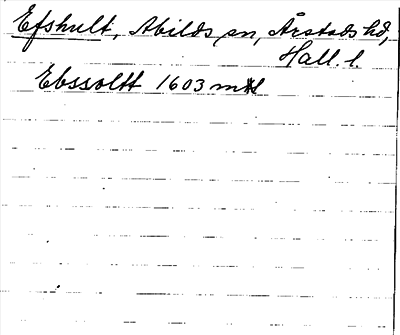 Efshult, Abilds sn, Årstads hd,
Hall. l.
Ebssoltt 1603